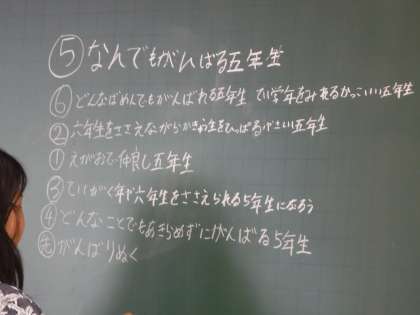 ⑤なんでもがんばる五年生
⑥どんなばめんでもがんばれる五年生 てい学年をみれるかっこいい五年生
②六年生をささえながら かき生をひっぱる やさしい五年生
①えがおで仲良し五年生
③ていがく年や六年生をささえられる5年生になろう
④どんなことでもあきらめずにがんばる5年生
がんばりぬく